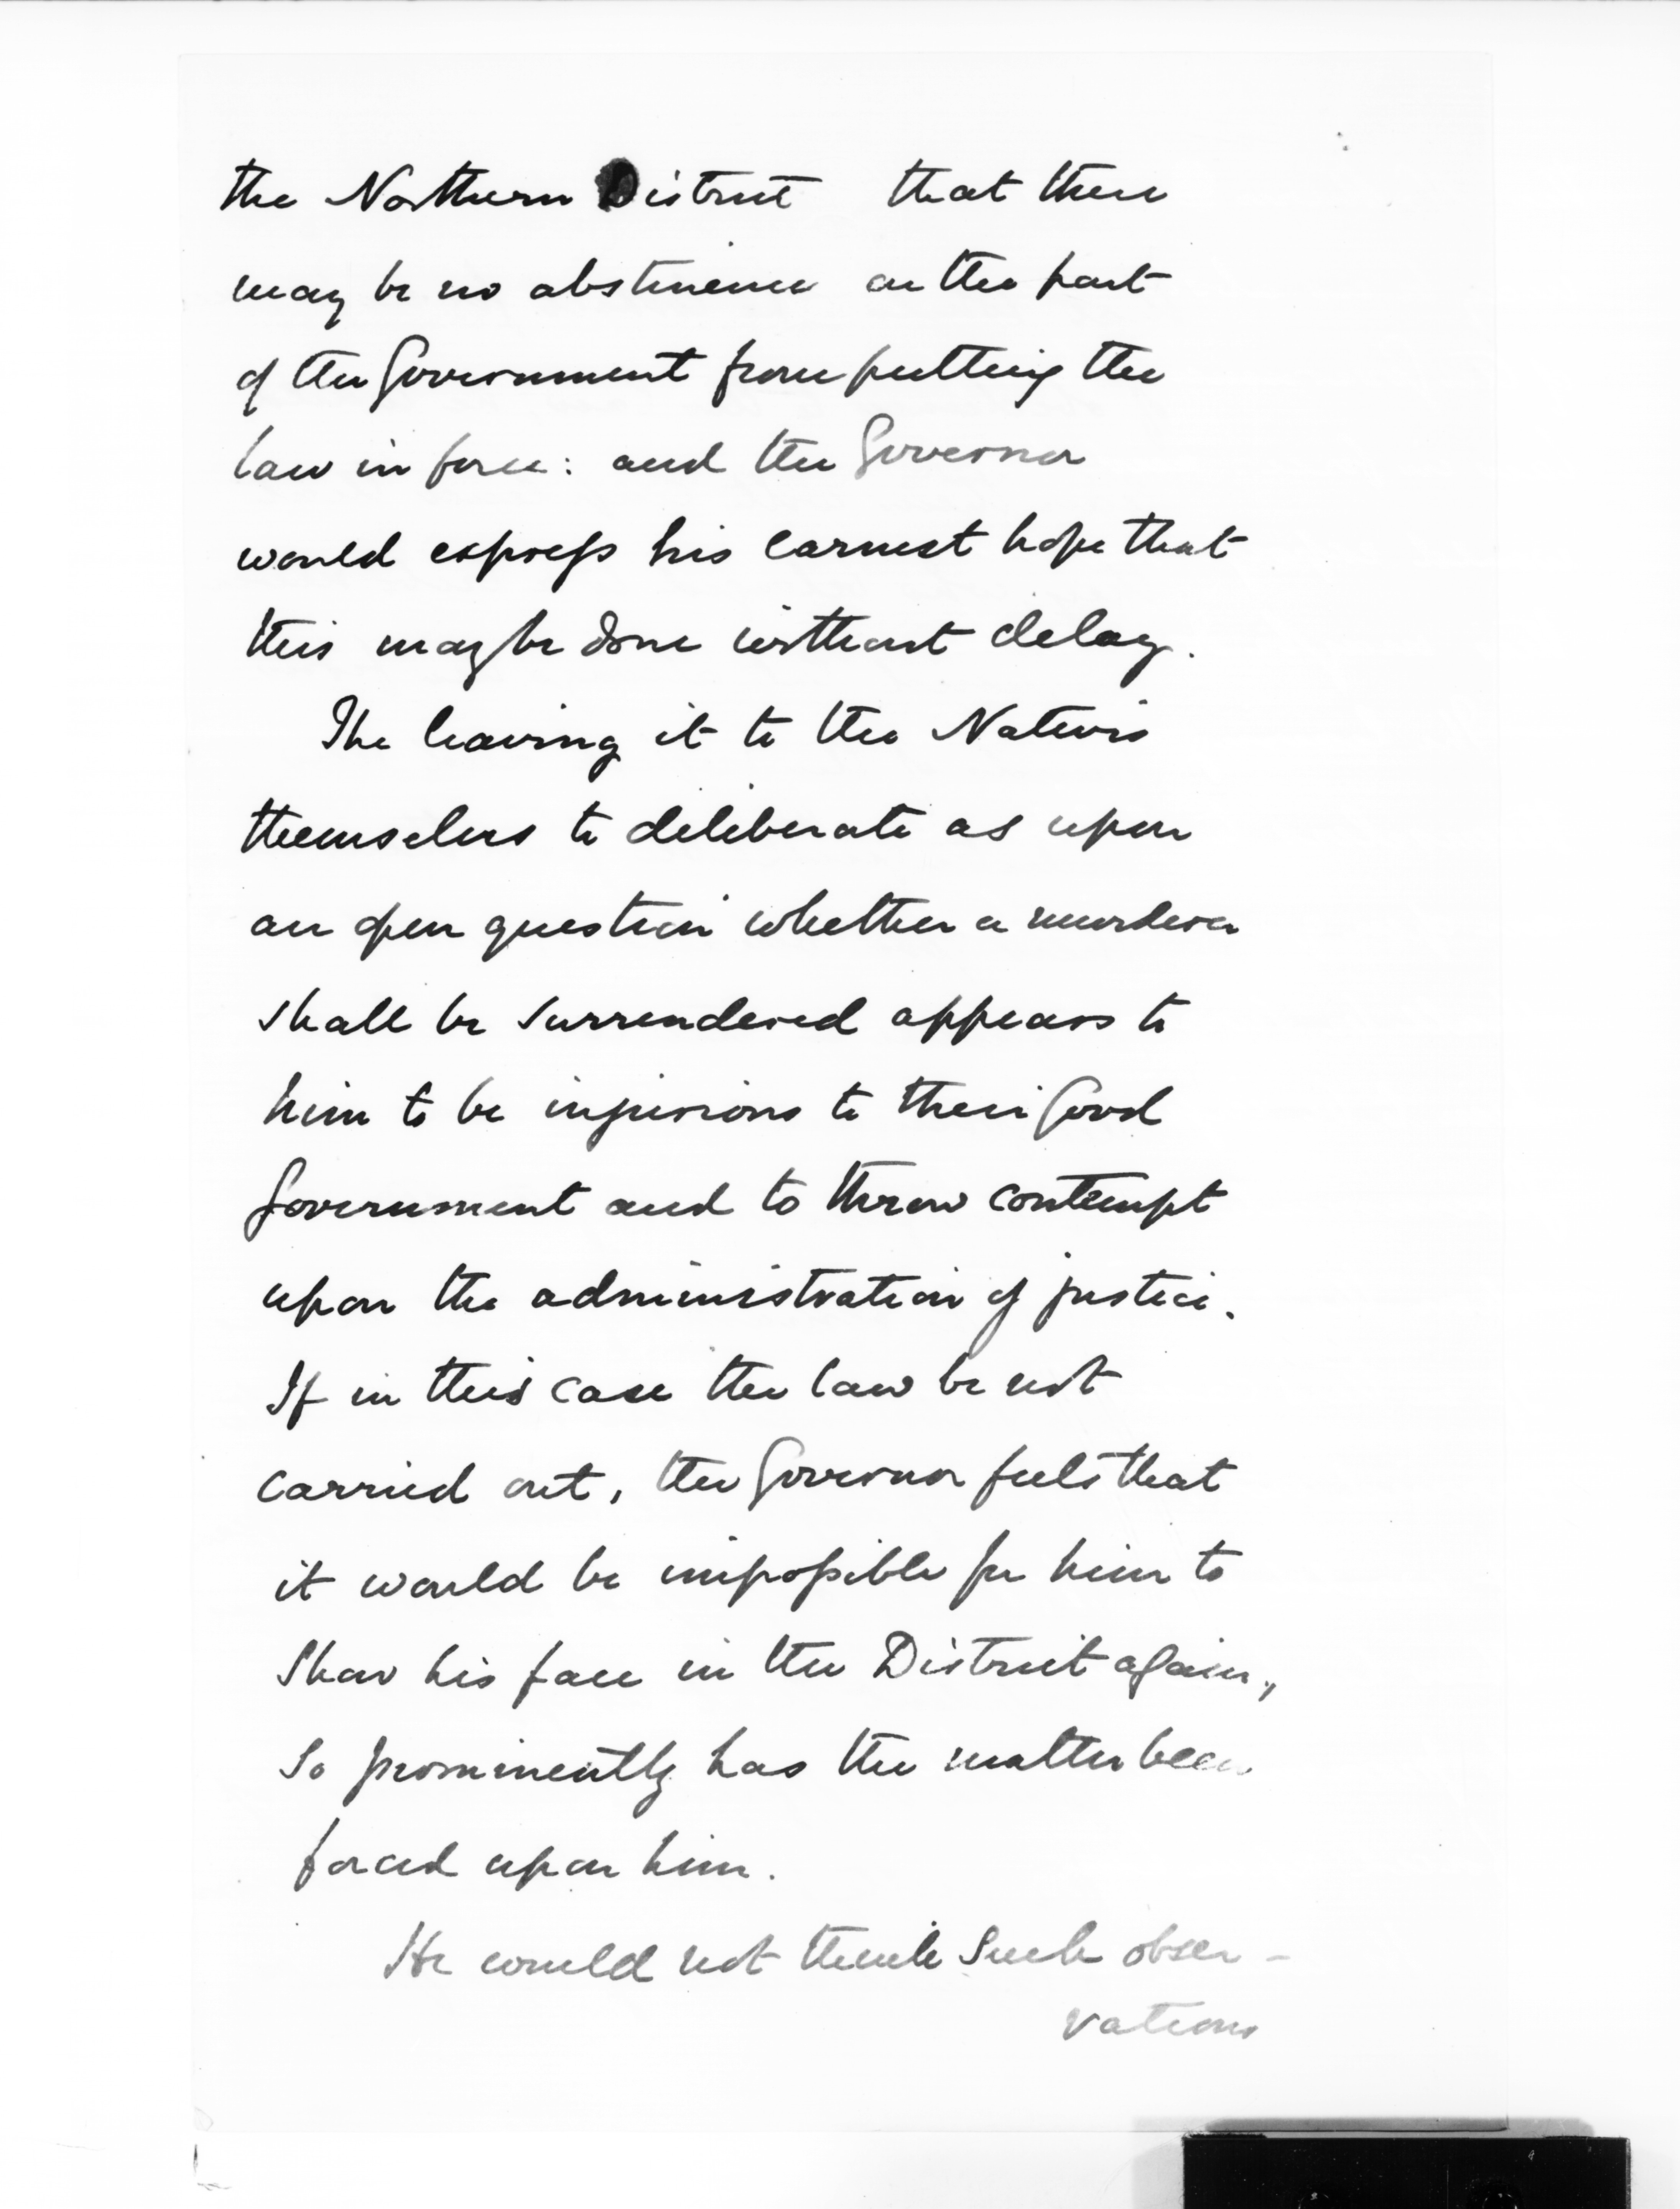 the Northern District that there
may be no abstinence on the part
of the Government from putting the
law in force: and the Governor
would express his earnest hope that
this may be done without delay.
The leaving it to the Natives
themselves to deliberate as upon
an open question whether a murderer
shall be surrendered appears to
him to be injurious to their Good
Government and to throw contempt
upon the administration of justice.
If in this case the law be not
carried out, the Governor feels that
it would be impossible for him to
Show his face in the District again,
So prominently has the matter been
forced upon him.
He would not think Such obser-
vations